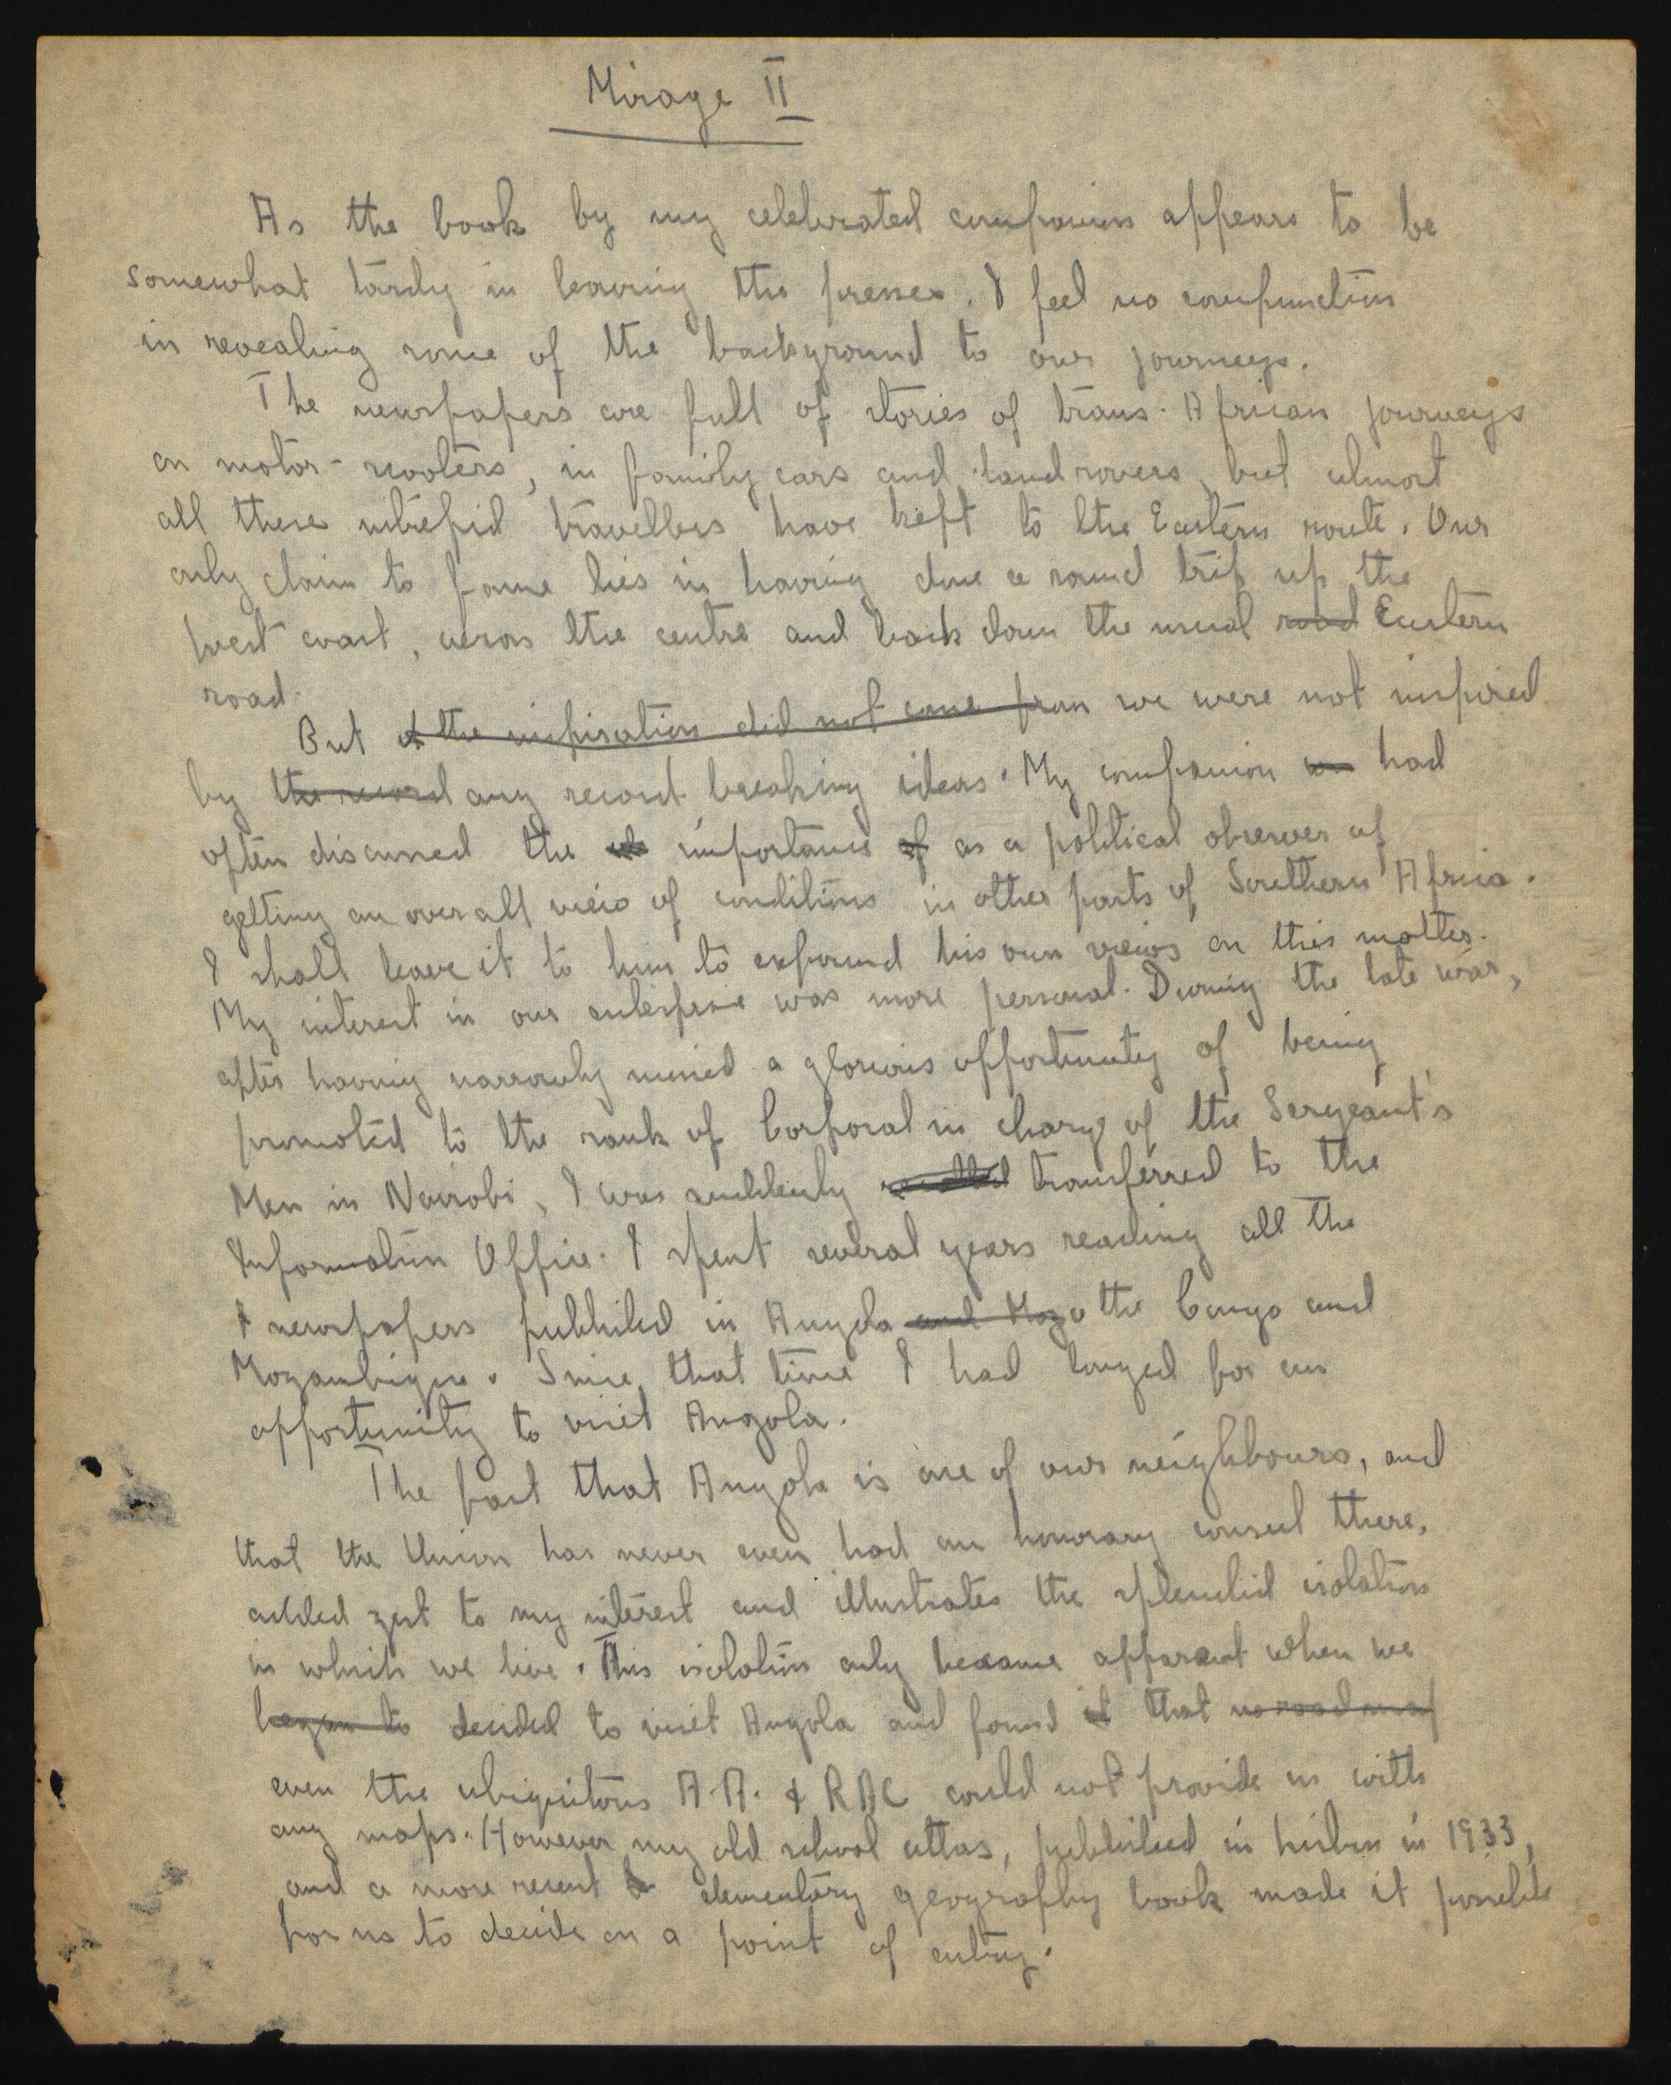 Mirage II
As the book by my celebrated companion appears to be
somewhat tardy in leaving the presses. I feel no compunction
in revealing some of the background to our journeys.
The newspapers are full of stories of trans-African journeys
on motor-scooters, in family cars and landrovers but almost
all these intrepid travellers have kept to the Eastern route. Our
only claim to fame lies in having done a round trip up the
west coast, across the centre and back down the usual road Eastern
road.
But the inspiration did not come from we were not inspired
by the record any record breaking ideas. My companion had
often discussed the importance of as a political observer of
getting an overall view of conditions in other parts of Southern Africa.
I shall leave it to him to expound his own views on this matter.
My interest in our enterprise was more personal. During the late war,
after having narrowly missed a glorious opportunity of being
promoted to the rank of Corporal in charge of the Sergeant's
Mess in Nairobi, I was suddenly transferred to the
Information Office. I spent several years reading all the
newspapers published in Angola and Moza the Congo and
Mozambique. Since that time I had longed for an
opportunity to visit Angola.
The fact that Angola is one of our neighbours, and
that the Union has never even had an honorary consul there,
added zest to my interest and illustrates the splendid isolation
in which we live. This isolation only became apparent when we
began to decided to visit Angola and found it that no road map
even the ubiquitous A.A. & RAC could not provide us with
any maps. However my old school atlas, published in Lisbon in 1933,
and a more recent elementary geography book made it possible
for us to decide on a point of entry.